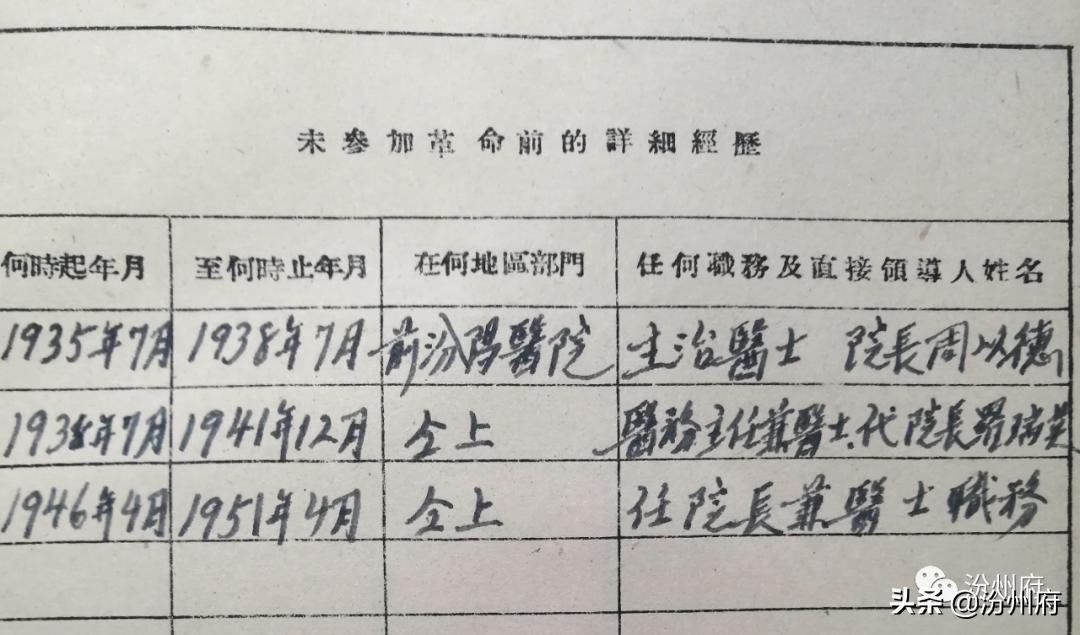 未參加革命前的詳細經歷
何時起年月 至何時止年月 在何地區部門 任何職務及直接領導人姓名
1935年7月 1938年7月 前汾陽醫院 主治醫士 院長周以德
1938年7月 1941年12月 仝上 醫務主任兼醫士、代院長羅瑞英
1946年4月 1951年4月 仝上 任院長兼醫士職務
汾州府
头条 @汾州府